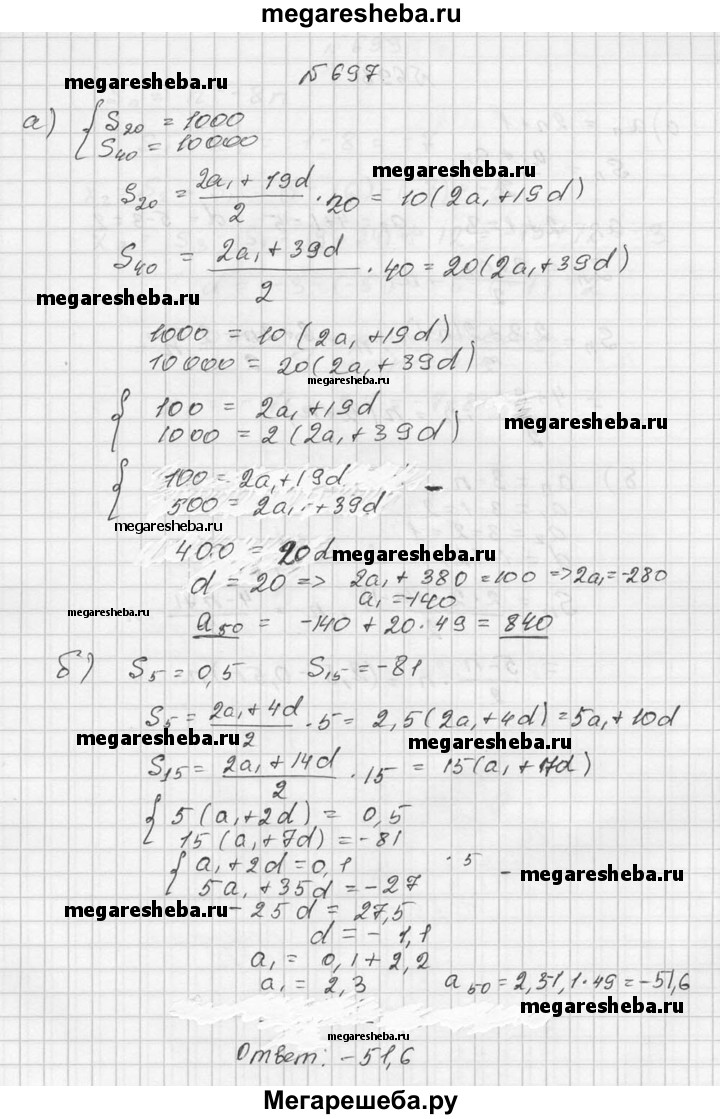 megaresheba.ru
№ 697
megaresheba.ru
а) { S₂₀ = 1000
S₄₀ = 10000
megaresheba.ru
S₂₀ = (2a₁ + 19d)/2 · 20 = 10(2a₁+19d)
S₄₀ = (2a₁ + 39d)/2 · 40 = 20(2a₁+39d)
megaresheba.ru
1000 = 10(2a₁+19d)
10000 = 20(2a₁+39d)
megaresheba.ru
{ 100 = 2a₁+19d
1000 = 2(2a₁+39d)
megaresheba.ru
{ 100 = 2a₁+19d
500 = 2a₁+39d −
megaresheba.ru
400 = 20d
megaresheba.ru
d = 20 => 2a₁ + 380 = 100 => 2a₁ = -280
a₁ = -140
megaresheba.ru
a₅₀ = -140 + 20·49 = 840
б) S₅ = 0,5 S₁₅ = -81
S₅ = (2a₁+4d)/2 · 5 = 2,5(2a₁+4d) = 5a₁+10d
megaresheba.ru
megaresheba.ru
S₁₅ = (2a₁+14d)/2 · 15 = 15(a₁+17d)
{ 5(a₁+2d) = 0,5
15(a₁+7d) = -81
{ a₁+2d = 0,1 · 5
5a₁+35d = -27 −
megaresheba.ru
megaresheba.ru
-25d = 27,5
d = -1,1
a₁ = 0,1+2,2
a₁ = 2,3 a₅₀ = 2,31,1·49 = -51,6
megaresheba.ru
megaresheba.ru
Ответ: -51,6
Мегарешеба.ру